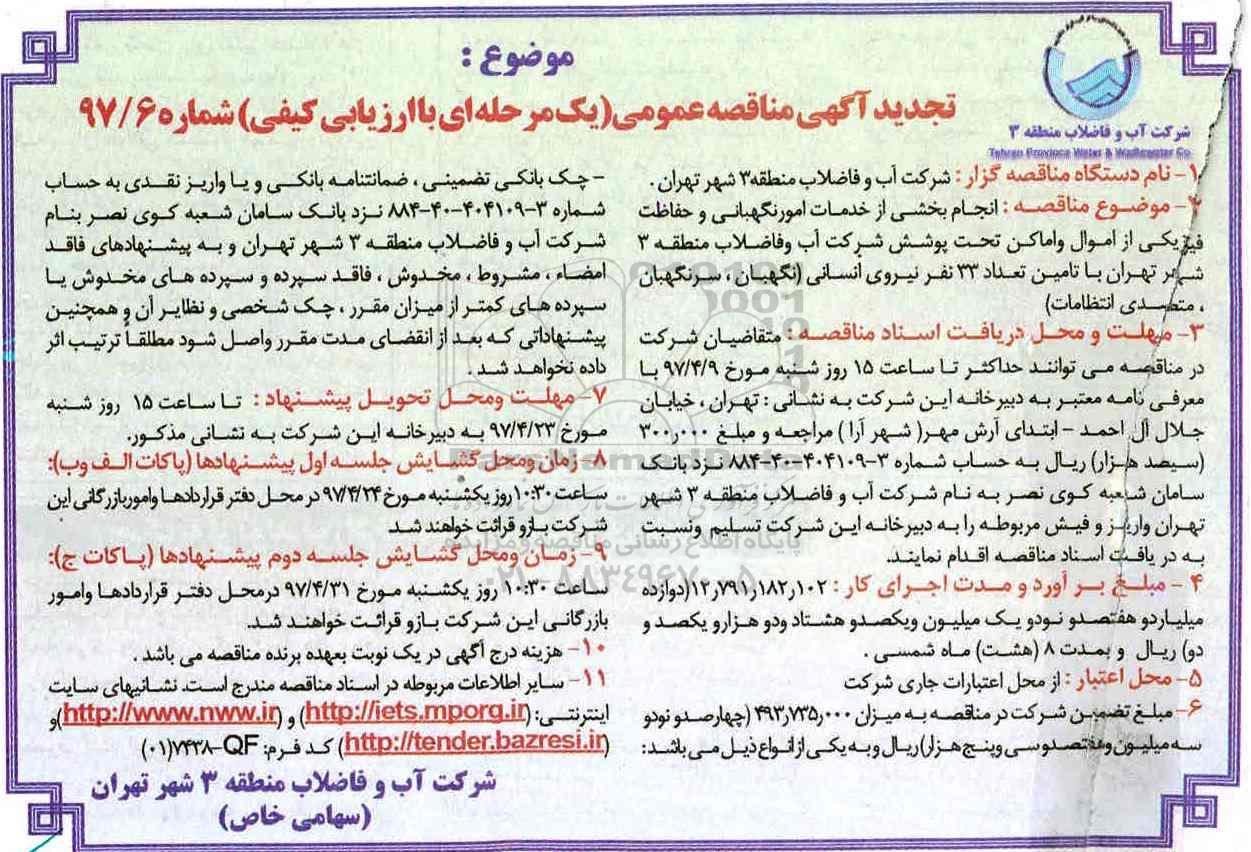 موضوع :
تجدید آگهی مناقصه عمومی (یک مرحله‌ای با ارزیابی کیفی) شماره ۹۷/۶
شرکت آب و فاضلاب منطقه ۳
Tehran Province Water & Wastewater Co
۱- نام دستگاه مناقصه گزار : شرکت آب و فاضلاب منطقه۳ شهر تهران .
۲- موضوع مناقصه : انجام بخشی از خدمات امورنگهبانی و حفاظت
فیزیکی از اموال واماکن تحت پوشش شرکت آب وفاضلاب منطقه ۳
شهر تهران با تامین تعداد ۳۳ نفر نیروی انسانی (نگهبان ، سرنگهبان
، متصدی انتظامات)
۳- مهلت و محل دریافت اسناد مناقصه : متقاضیان شرکت
در مناقصه می توانند حداکثر تا ساعت ۱۵ روز شنبه مورخ ۹۷/۴/۹ با
معرفی نامه معتبر به دبیرخانه این شرکت به نشانی : تهران ، خیابان
جلال آل احمد - ابتدای آرش مهر( شهر آرا ) مراجعه و مبلغ ۳۰۰٫۰۰۰
(سیصد هزار) ریال به حساب شماره ۳-۴۰۴۱۰۹-۴۰-۸۸۴ نزد بانک
سامان شعبه کوی نصر به نام شرکت آب و فاضلاب منطقه ۳ شهر
تهران واریز و فیش مربوطه را به دبیرخانه این شرکت تسلیم ونسبت
به در یافت اسناد مناقصه اقدام نمایند.
۴ - مبلغ بر آورد و مدت اجرای کار : ۱۲٫۷۹۱٫۱۸۲٫۱۰۲(دوازده
میلیاردو هفتصدو نودو یک میلیون ویکصدو هشتاد ودو هزارو یکصد و
دو) ریال و بمدت ۸ (هشت) ماه شمسی .
۵- محل اعتبار : از محل اعتبارات جاری شرکت
۶- مبلغ تضمین شرکت در مناقصه به میزان ۴۹۳٫۷۳۵٫۰۰۰ (چهارصدو نودو
سه میلیون وهفتصدو سی و پنج هزار) ریال و به یکی از انواع ذیل می باشد:
- چک بانکی تضمینی ، ضمانتنامه بانکی و یا واریز نقدی به حساب
شماره ۳-۴۰۴۱۰۹-۴۰-۸۸۴ نزد بانک سامان شعبه کوی نصر بنام
شرکت آب و فاضلاب منطقه ۳ شهر تهران و به پیشنهادهای فاقد
امضاء ، مشروط ، مخدوش ، فاقد سپرده و سپرده های مخدوش یا
سپرده های کمتر از میزان مقرر ، چک شخصی و نظایر آن و همچنین
پیشنهاداتی که بعد از انقضای مدت مقرر واصل شود مطلقاً ترتیب اثر
داده نخواهد شد .
۷- مهلت ومحل تحویل پیشنهاد : تا ساعت ۱۵ روز شنبه
مورخ ۹۷/۴/۲۳ به دبیرخانه این شرکت به نشانی مذکور.
۸- زمان ومحل گشایش جلسه اول پیشنهادها (پاکات الف وب):
ساعت ۱۰:۳۰ روز یکشنبه مورخ ۹۷/۴/۲۴ در محل دفتر قراردادها وامور بازرگانی این
شرکت بازو قرائت خواهند شد.
۹- زمان ومحل گشایش جلسه دوم پیشنهادها (پاکات ج):
ساعت ۱۰:۳۰ روز یکشنبه مورخ ۹۷/۴/۳۱ درمحل دفتر قراردادها وامور
بازرگانی این شرکت بازو قرائت خواهند شد.
۱۰- هزینه درج آگهی در یک نوبت بعهده برنده مناقصه می باشد .
۱۱- سایر اطلاعات مربوطه در اسناد مناقصه مندرج است. نشانیهای سایت
اینترنتی: (http://iets.mporg.ir) و (http://www.nww.ir)و
(http://tender.bazresi.ir) کد فرم: QF-۷۴۳۸(۰۱)
شرکت آب و فاضلاب منطقه ۳ شهر تهران
(سهامی خاص)
ParsNamadData
پایگاه اطلاع رسانی مناقصه و مزایده
۰۲۱-۸۸۳۴۹۶۷۰-۵